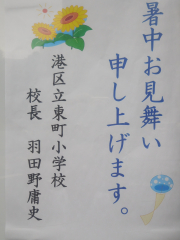 暑中お見舞い
申し上げます。
港区立東町小学校
校長　羽田野庸史